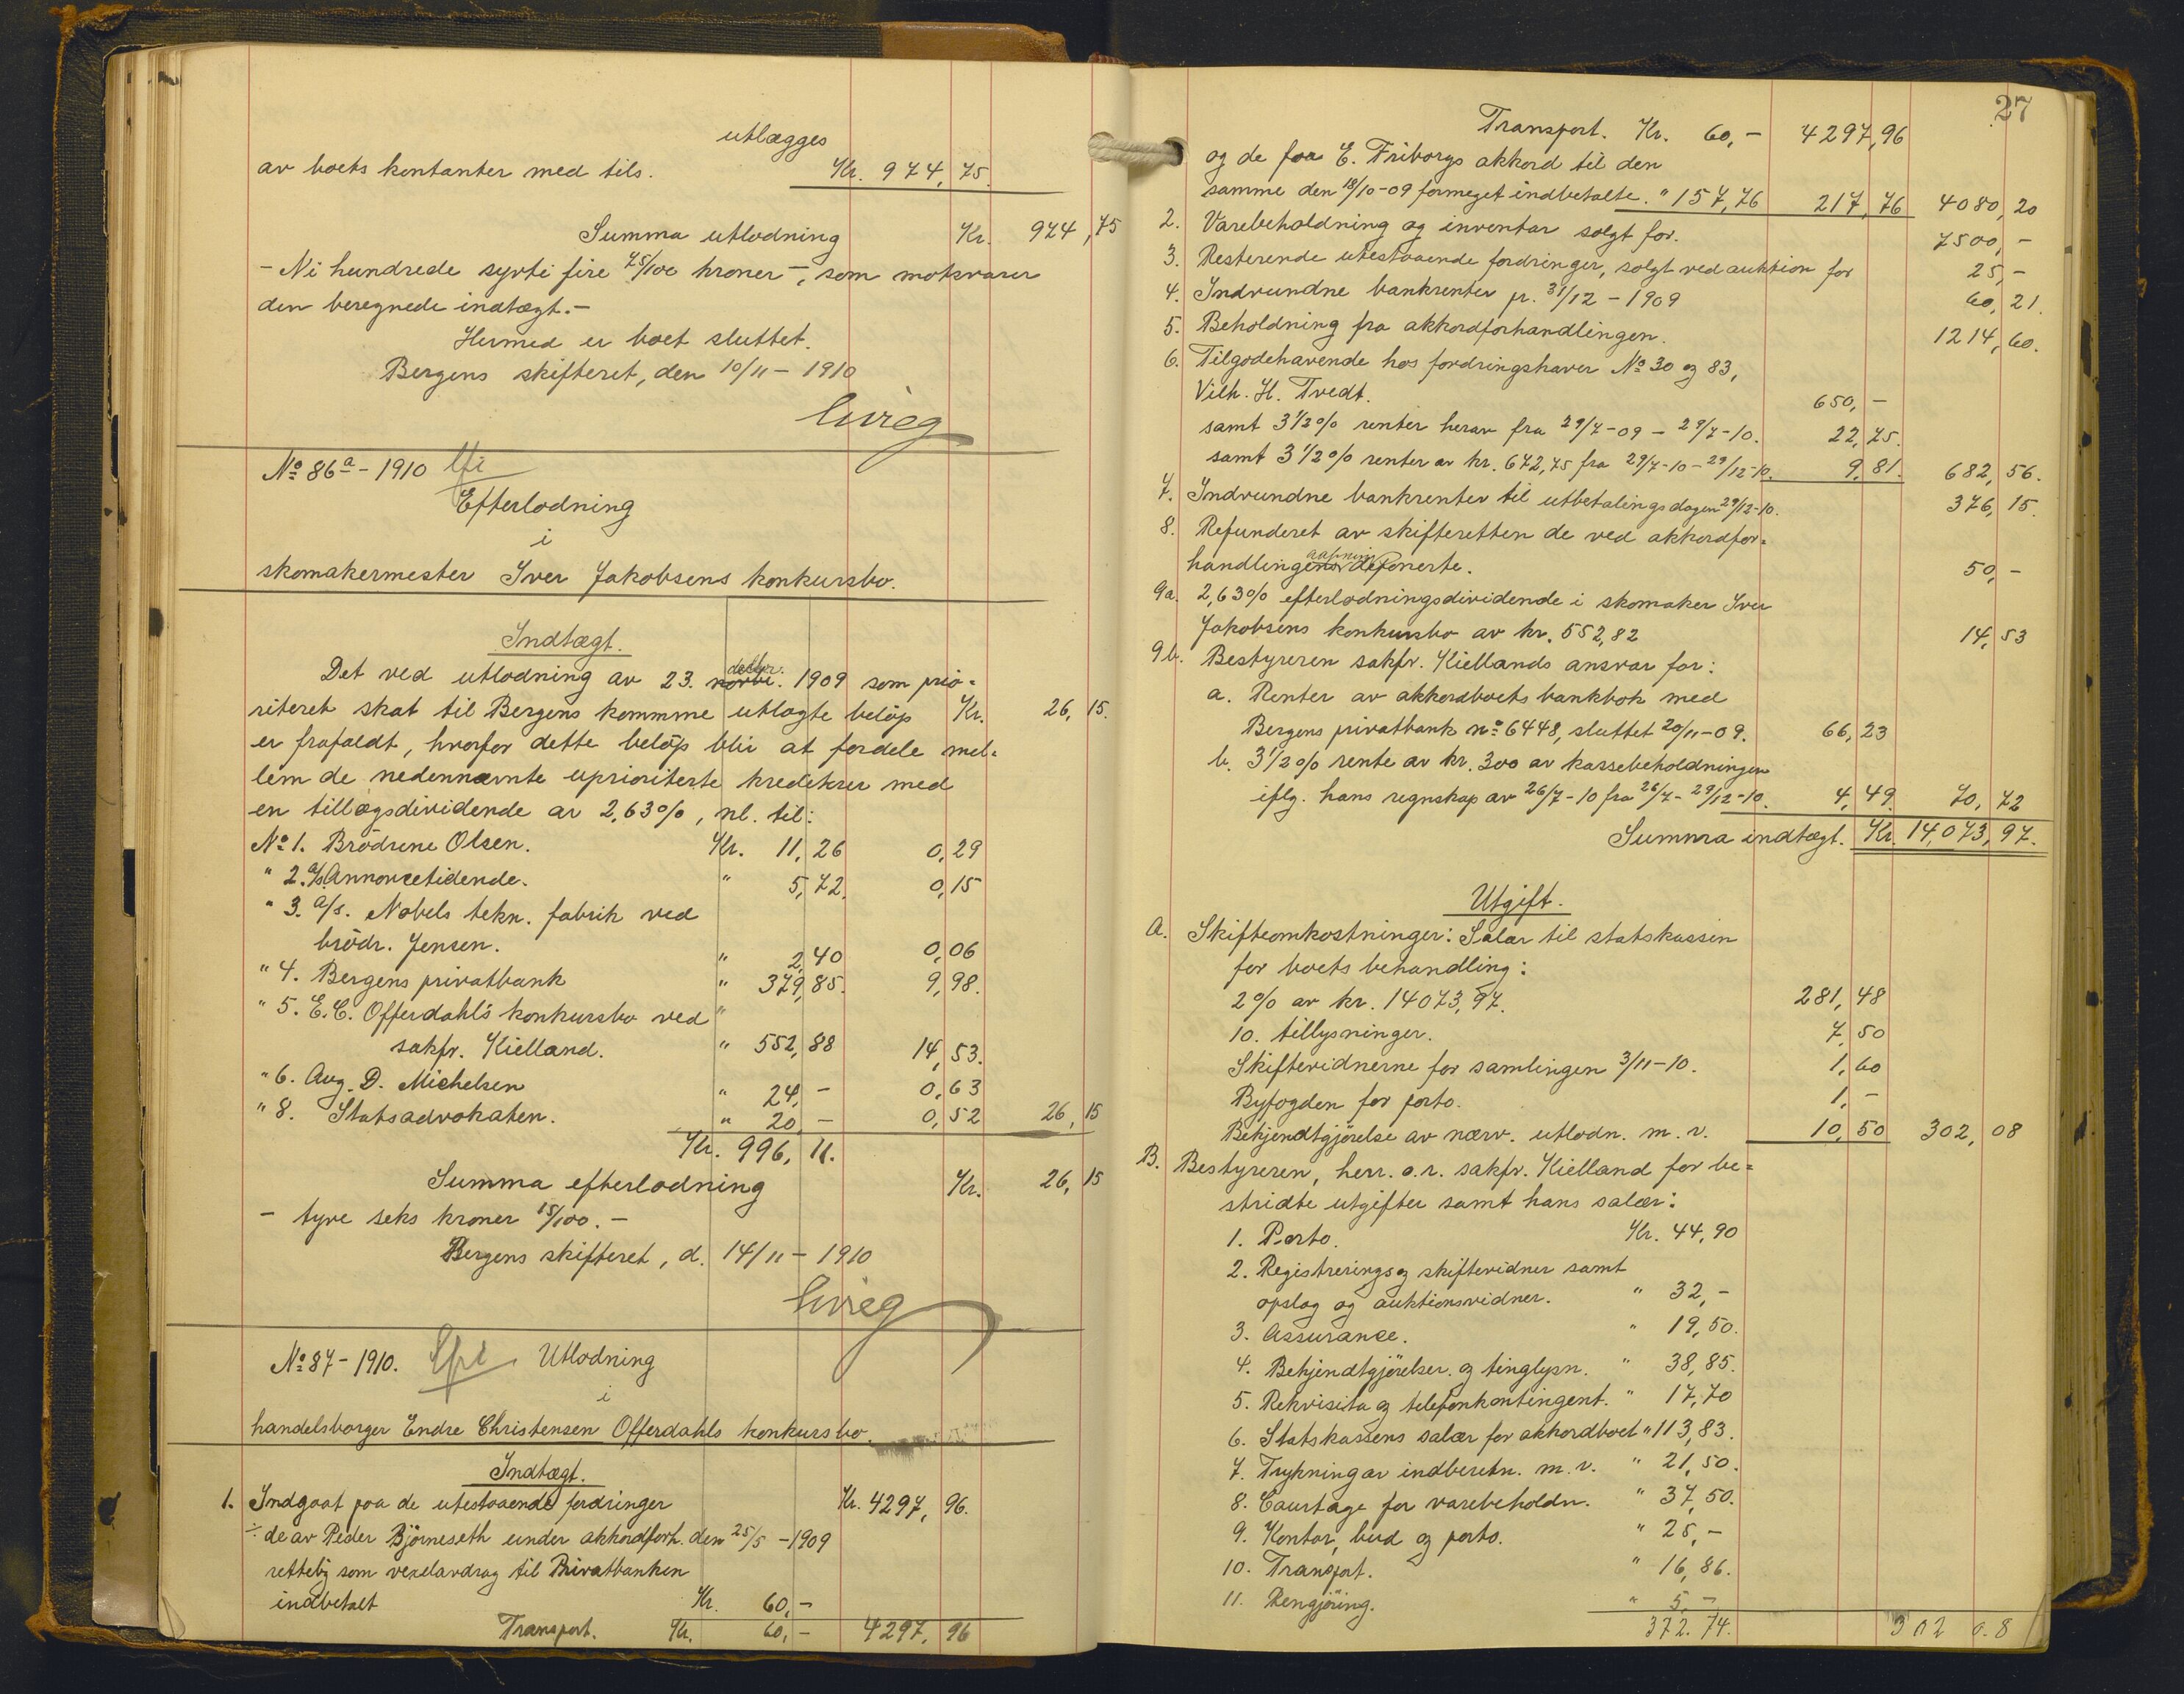 utlægges
av boets kontanter med tils. Kr. 974,75.
Summa utlodning Kr. 974,75
- Ni hundrede sytti fire 75/100 kroner -, som motsvarer
den beregnede indtægt.-
Hermed er boet sluttet.
Bergens skifteret, den 10/11 - 1910
No 86a - 1910
Efterlodning
i
skomakermester Iver Jakobsens konkursbo.
Indtægt.
Det ved utlodning av 23. novbr. decbr. 1909 som prio=
riteret skat til Bergens kommune utlagte beløp Kr. 26,15.
er frafaldt, hvorfor dette beløp blir at fordele mel=
lem de nedennævnte uprioriterte kreditorer med
en tillægsdividende av 2,63%, nl. til:
No 1. Brödrene Olsen. Kr. 11,26 0,29
" 2. A/S Annoncetidende. " 5,72 0,15
" 3. A/S. Nobels tekn. fabrik ved
brödr. Jensen. " 2,40 0,06
" 4. Bergens privatbank " 379,85. 9,98.
" 5. E. C. Offerdahls konkursbo ved "
sakfr. Kielland. " 552,88 14,53.
" 6. Aug. D. Michelsen " 24,- 0,63
" 8. Statsadvokaten. " 20,- 0,52 26,15
Kr. 996,11.
Summa efterlodning Kr. 26,15
- tyve seks kroner 15/100. -
Bergens skifteret, d. 14/11 - 1910
No 87 - 1910. Utlodning
i
handelsborger Endre Christensen Offerdahls konkursbo.
Indtægt.
1. Indgaat paa de utestaaende fordringer Kr. 4297,96.
÷ de av Peder Bjørneseth under akkordforh. den 25/5 - 1909
rettelig som vexelavdrag til Privatbanken
indbetalt Kr. 60,-
Transport. Kr. 60,- 4297,96
27
Transport. Kr. 60,- 4297,96
og de paa E. Friborgs akkord til den
samme den 18/10-09 formeget indbetalte. " 157,76 217,76 4080,20
2. Varebeholdning og inventar solgt for. 7500,-
3. Resterende utestaaende fordringer, solgt ved auktion for 25,-
4. Indvundne bankrenter pr. 31/12 - 1909 60,21.
5. Beholdning fra akkordforhandlingen. 1214,60.
6. Tilgodehavende hos fordringshaver No 30 og 83,
Vilh. H. Tvedt. 650,-
samt 3 1/2% renter herav fra 29/7-09 - 29/7-10. 22,75.
samt 3 1/2% renter av kr. 672,75 fra 29/7-10 - 29/12-10. 9,81. 682,56.
7. Indvundne bankrenter til utbetalingsdagen 29/12-10. 376,15.
8. Refunderet av skifteretten de ved akkordfor=
handlingens aapning deponerte. 50,-
9a. 2,63% efterlodningsdividende i skomaker Iver
Jakobsens konkursbo av kr. 552,82 14,53
9b. Bestyreren sakfr. Kiellands ansvar for:
a. Renter av akkordboets bankbok med
Bergens privatbank no 6448, sluttet 20/11-09. 66,23
b. 3 1/2% rente av kr. 300 av kassebeholdningen
iflg. hans regnskap av 26/7-10 fra 26/7 - 29/12-10. 4,49. 70,72
Summa indtægt. Kr. 14,073,97.
Utgift.
A. Skifteomkostninger: Salær til statskassen
for boets behandling:
2% av kr. 14073,97. 281,48
10. tillysninger. 7,50
Skiftevidnerne for samlingen 3/11-10. 1,60
Byfogden for porto. 1,-
Bekjendtgjørelse av nærv. utlodn. m. v. 10,50 302,08
B. Bestyreren, herr. o.r. sakfr. Kielland for be=
stridte utgifter samt hans salær:
1. Porto. Kr. 44,90
2. Registrerings og skiftevidner samt
opslag og auktionsvidner. " 32,-
3. Assurance. " 19,50.
4. Bekjendtgjørelser og tinglysn. " 38,85.
5. Rekvisita og telefonkontingent. " 17,70
6. Statskassens salær for akkordboet " 113,83.
7. Trykning av indberetn. m. v. " 21,50.
8. Courtage for varebeholdn. " 37,50.
9. Kontor, bud og porto. " 25,-
10. Transport. " 16,86.
11. Rengjöring. " 5,-
372.74. 302 0.8